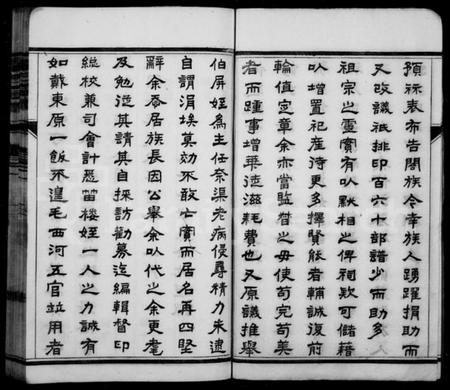 預祘表布告閤族令幸族人踴躍捐助而
又改議祗排印百六十部譜少而助多人
祖宗之靈實有㕥默相之俾祠欵可儲藉
㕥增置祀產待更多擇賢能者輔誠復前
輪值定章余亦當監督之毋使苟完苟美
者而踵事增華徒滋耗費也又原議推舉
伯屏姪為主任奈渠老病侵尋精力未逮
自謂涓埃莫効不敢亡實而居名再四堅
辭余忝居族長因公舉余㕥代之余更耄
及勉從其請其自採訪勸募迄編輯督印
總校兼司會計悉笛樓姪一人之力誠有
如戴東原一飯不遑毛西河五官並用者